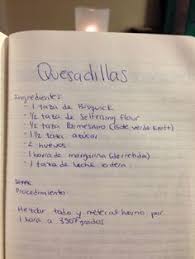 Quesadillas
Ingredientes:
- 1 taza de Bisquick
- 1/2 taza de Selfrising flour
- 1/2 taza Parmesano (bote verde Kraft)
- 1/2 taza azúcar
- 2 huevos
- 1 barra de margarina (derretida)
- 1 taza de leche
Procedimiento:
Mezclar todo y meter al horno por
1 hora a 350 grados